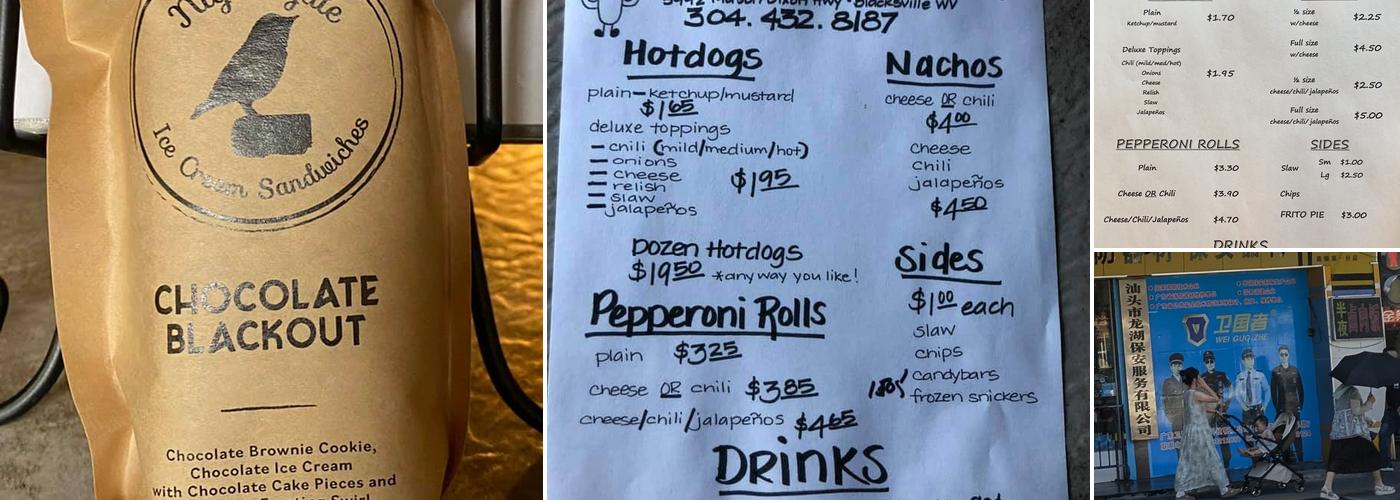 Ice Cream Sandwiches
CHOCOLATE
BLACKOUT
Chocolate Brownie Cookie,
Chocolate Ice Cream
with Chocolate Cake Pieces and
Hwy · Blacksville WV
304. 432. 8187
Hotdogs
plain - ketchup/mustard
$1.65
deluxe toppings
- chili (mild/medium/hot)
- onions
- cheese
- relish
- slaw
- jalapeños
$1.95
Dozen Hotdogs
$19.50 *any way you like!
Pepperoni Rolls
plain $3.25
cheese OR chili $3.85
cheese/chili/jalapeños $4.65
Nachos
cheese OR chili
$4.00
cheese
chili
jalapeños
$4.50
Sides
$1.00 each
slaw
chips
candybars
frozen snickers
DRINKS
Plain
Ketchup/mustard
$1.70
Deluxe Toppings
Chili (mild/med/hot)
Onions
Cheese
Relish
Slaw
Jalapeños
$1.95
½ size
w/cheese
$2.25
Full size
w/cheese
$4.50
½ size
cheese/chili/jalapeños
$2.50
Full size
cheese/chili/jalapeños
$5.00
PEPPERONI ROLLS
Plain $3.30
Cheese OR Chili $3.90
Cheese/Chili/Jalapeños $4.70
SIDES
Slaw Sm $1.00
Lg $2.50
Chips
FRITO PIE $3.00
DRINKS
汕头市龙湖保安服务有限公司
卫国者
WEI GUO ZHE